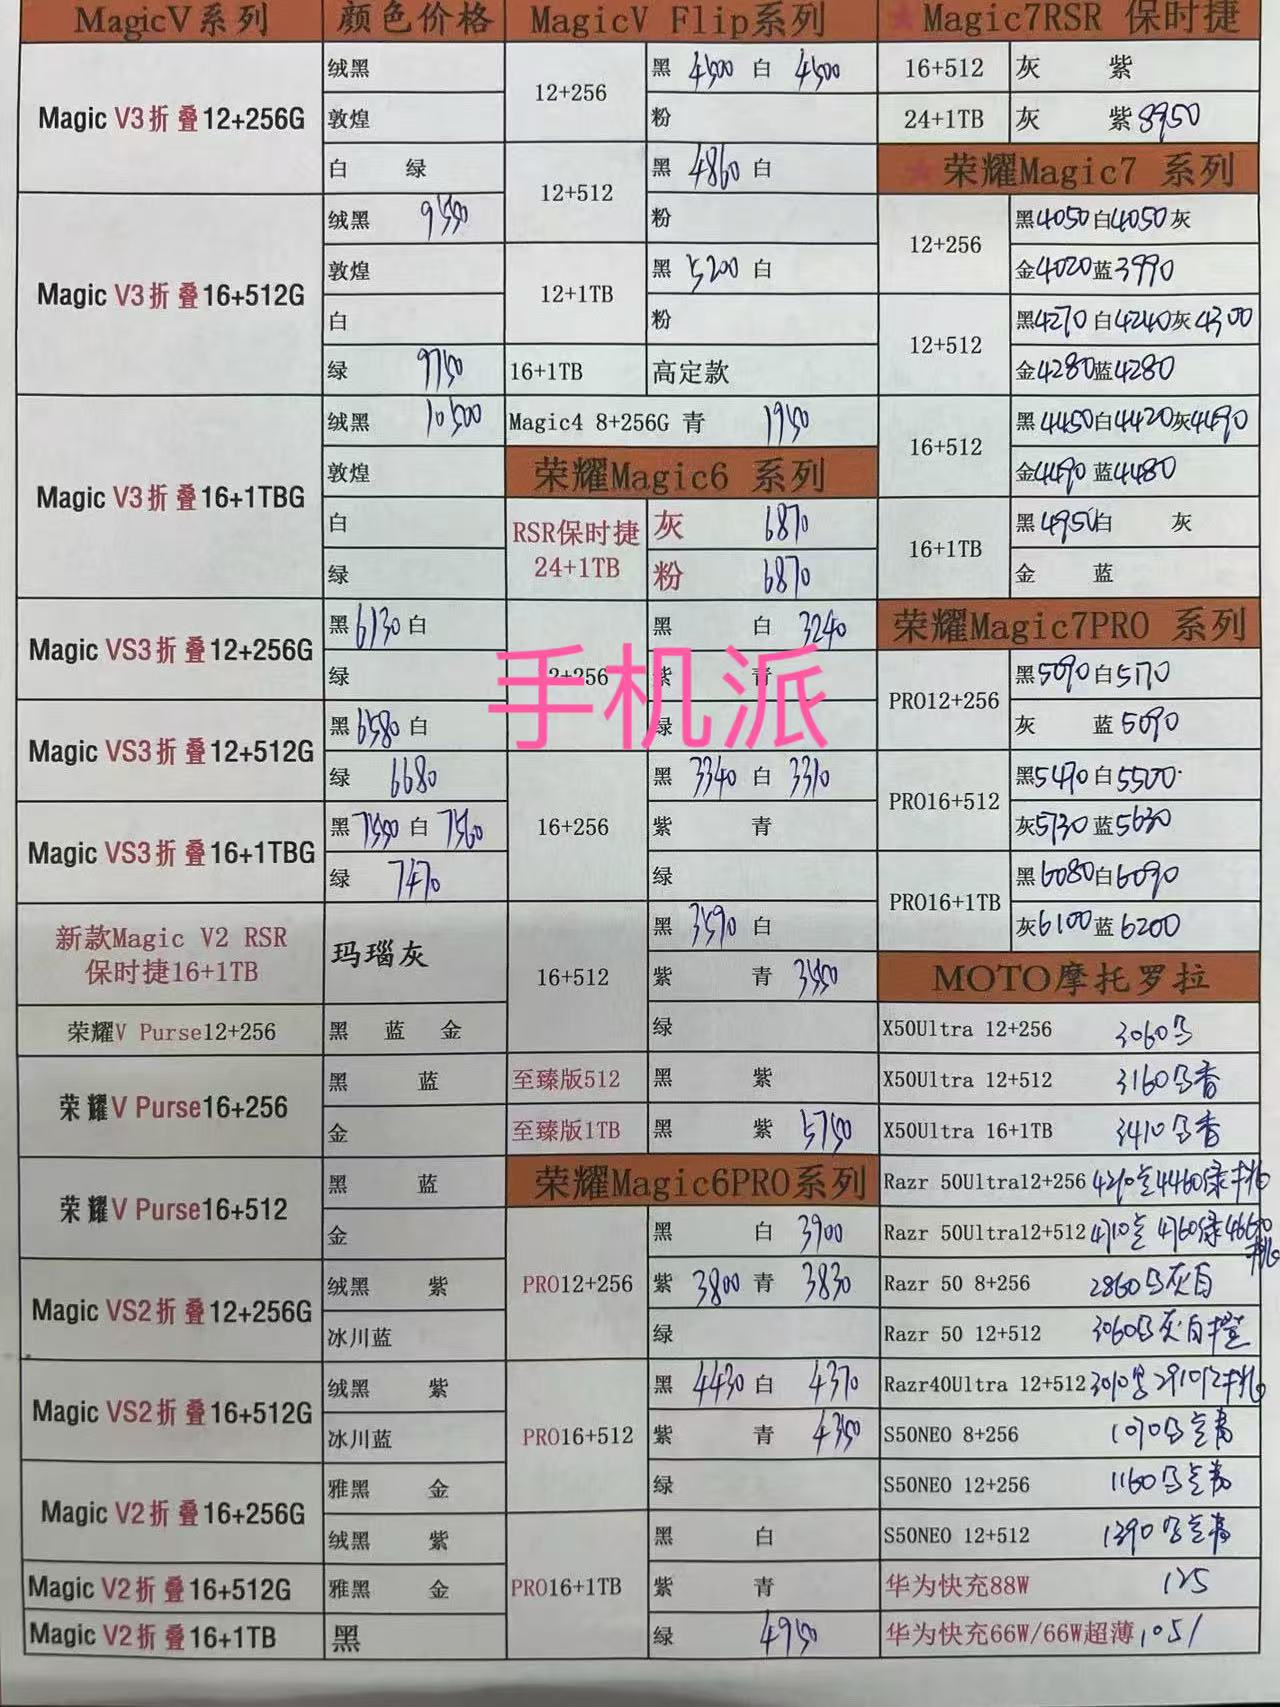 MagicV系列 颜色价格
Magic V3折叠12+256G 绒黑
敦煌
白 绿
Magic V3折叠16+512G 绒黑
敦煌
白
绿 9750
Magic V3折叠16+1TBG 绒黑 10500
敦煌
白
绿
Magic VS3折叠12+256G 黑6130白
绿
Magic VS3折叠12+512G 黑6580白
绿 6680
Magic VS3折叠16+1TBG 黑 白
绿 7470
新款Magic V2 RSR
保时捷16+1TB 玛瑙灰
荣耀V Purse12+256 黑 蓝 金
荣耀V Purse16+256 黑 蓝
金
荣耀V Purse16+512 黑 蓝
金
Magic VS2折叠12+256G 绒黑 紫
冰川蓝
Magic VS2折叠16+512G 绒黑 紫
冰川蓝
Magic V2折叠16+256G 雅黑 金
绒黑 紫
Magic V2折叠16+512G 雅黑 金
Magic V2折叠16+1TB 黑
MagicV Flip系列
12+256 黑 4500 白 4500
粉
12+512 黑 4860 白
粉
12+1TB 黑 5200 白
粉
16+1TB 高定款
Magic4 8+256G 青 1950
荣耀Magic6 系列
RSR保时捷
24+1TB 灰 6870
粉 6870
12+256 黑 白 3240
紫 青
绿
16+256 黑 3340 白 3310
紫 青
绿
16+512 黑 3590 白
紫 青
绿
至臻版512 黑 紫
至臻版1TB 黑 紫 5750
荣耀Magic6PRO系列
PRO12+256 黑 白 3900
紫 3800 青 3830
绿
PRO16+512 黑 4430 白 4370
紫 青 4350
绿
PRO16+1TB 黑 白
紫 青
绿 4950
★ Magic7RSR 保时捷
16+512 灰 紫
24+1TB 灰 紫8950
★ 荣耀Magic7 系列
12+256 黑4050白4050灰
金4020蓝3990
12+512 黑4270白4240灰4300
金4280蓝4280
16+512 黑4450白4420灰4490
金4490蓝4480
16+1TB 黑4950白 灰
金 蓝
荣耀Magic7PRO 系列
PRO12+256 黑5090白5170
灰 蓝5090
PRO16+512 黑5470白5500
灰5730蓝5630
PRO16+1TB 黑6080白6090
灰6100蓝6200
MOTO摩托罗拉
X50Ultra 12+256 3060
X50Ultra 12+512 3160
X50Ultra 16+1TB 3410
Razr 50Ultra12+256 4460绿
Razr 50Ultra12+512 4710 4760绿
Razr 50 8+256 2860 灰白
Razr 50 12+512 3060 灰白
Razr40Ultra 12+512 2910
S50NEO 8+256 1070
S50NEO 12+256 1160
S50NEO 12+512 1390
华为快充88W 125
华为快充66W/66W超薄 105
手机派